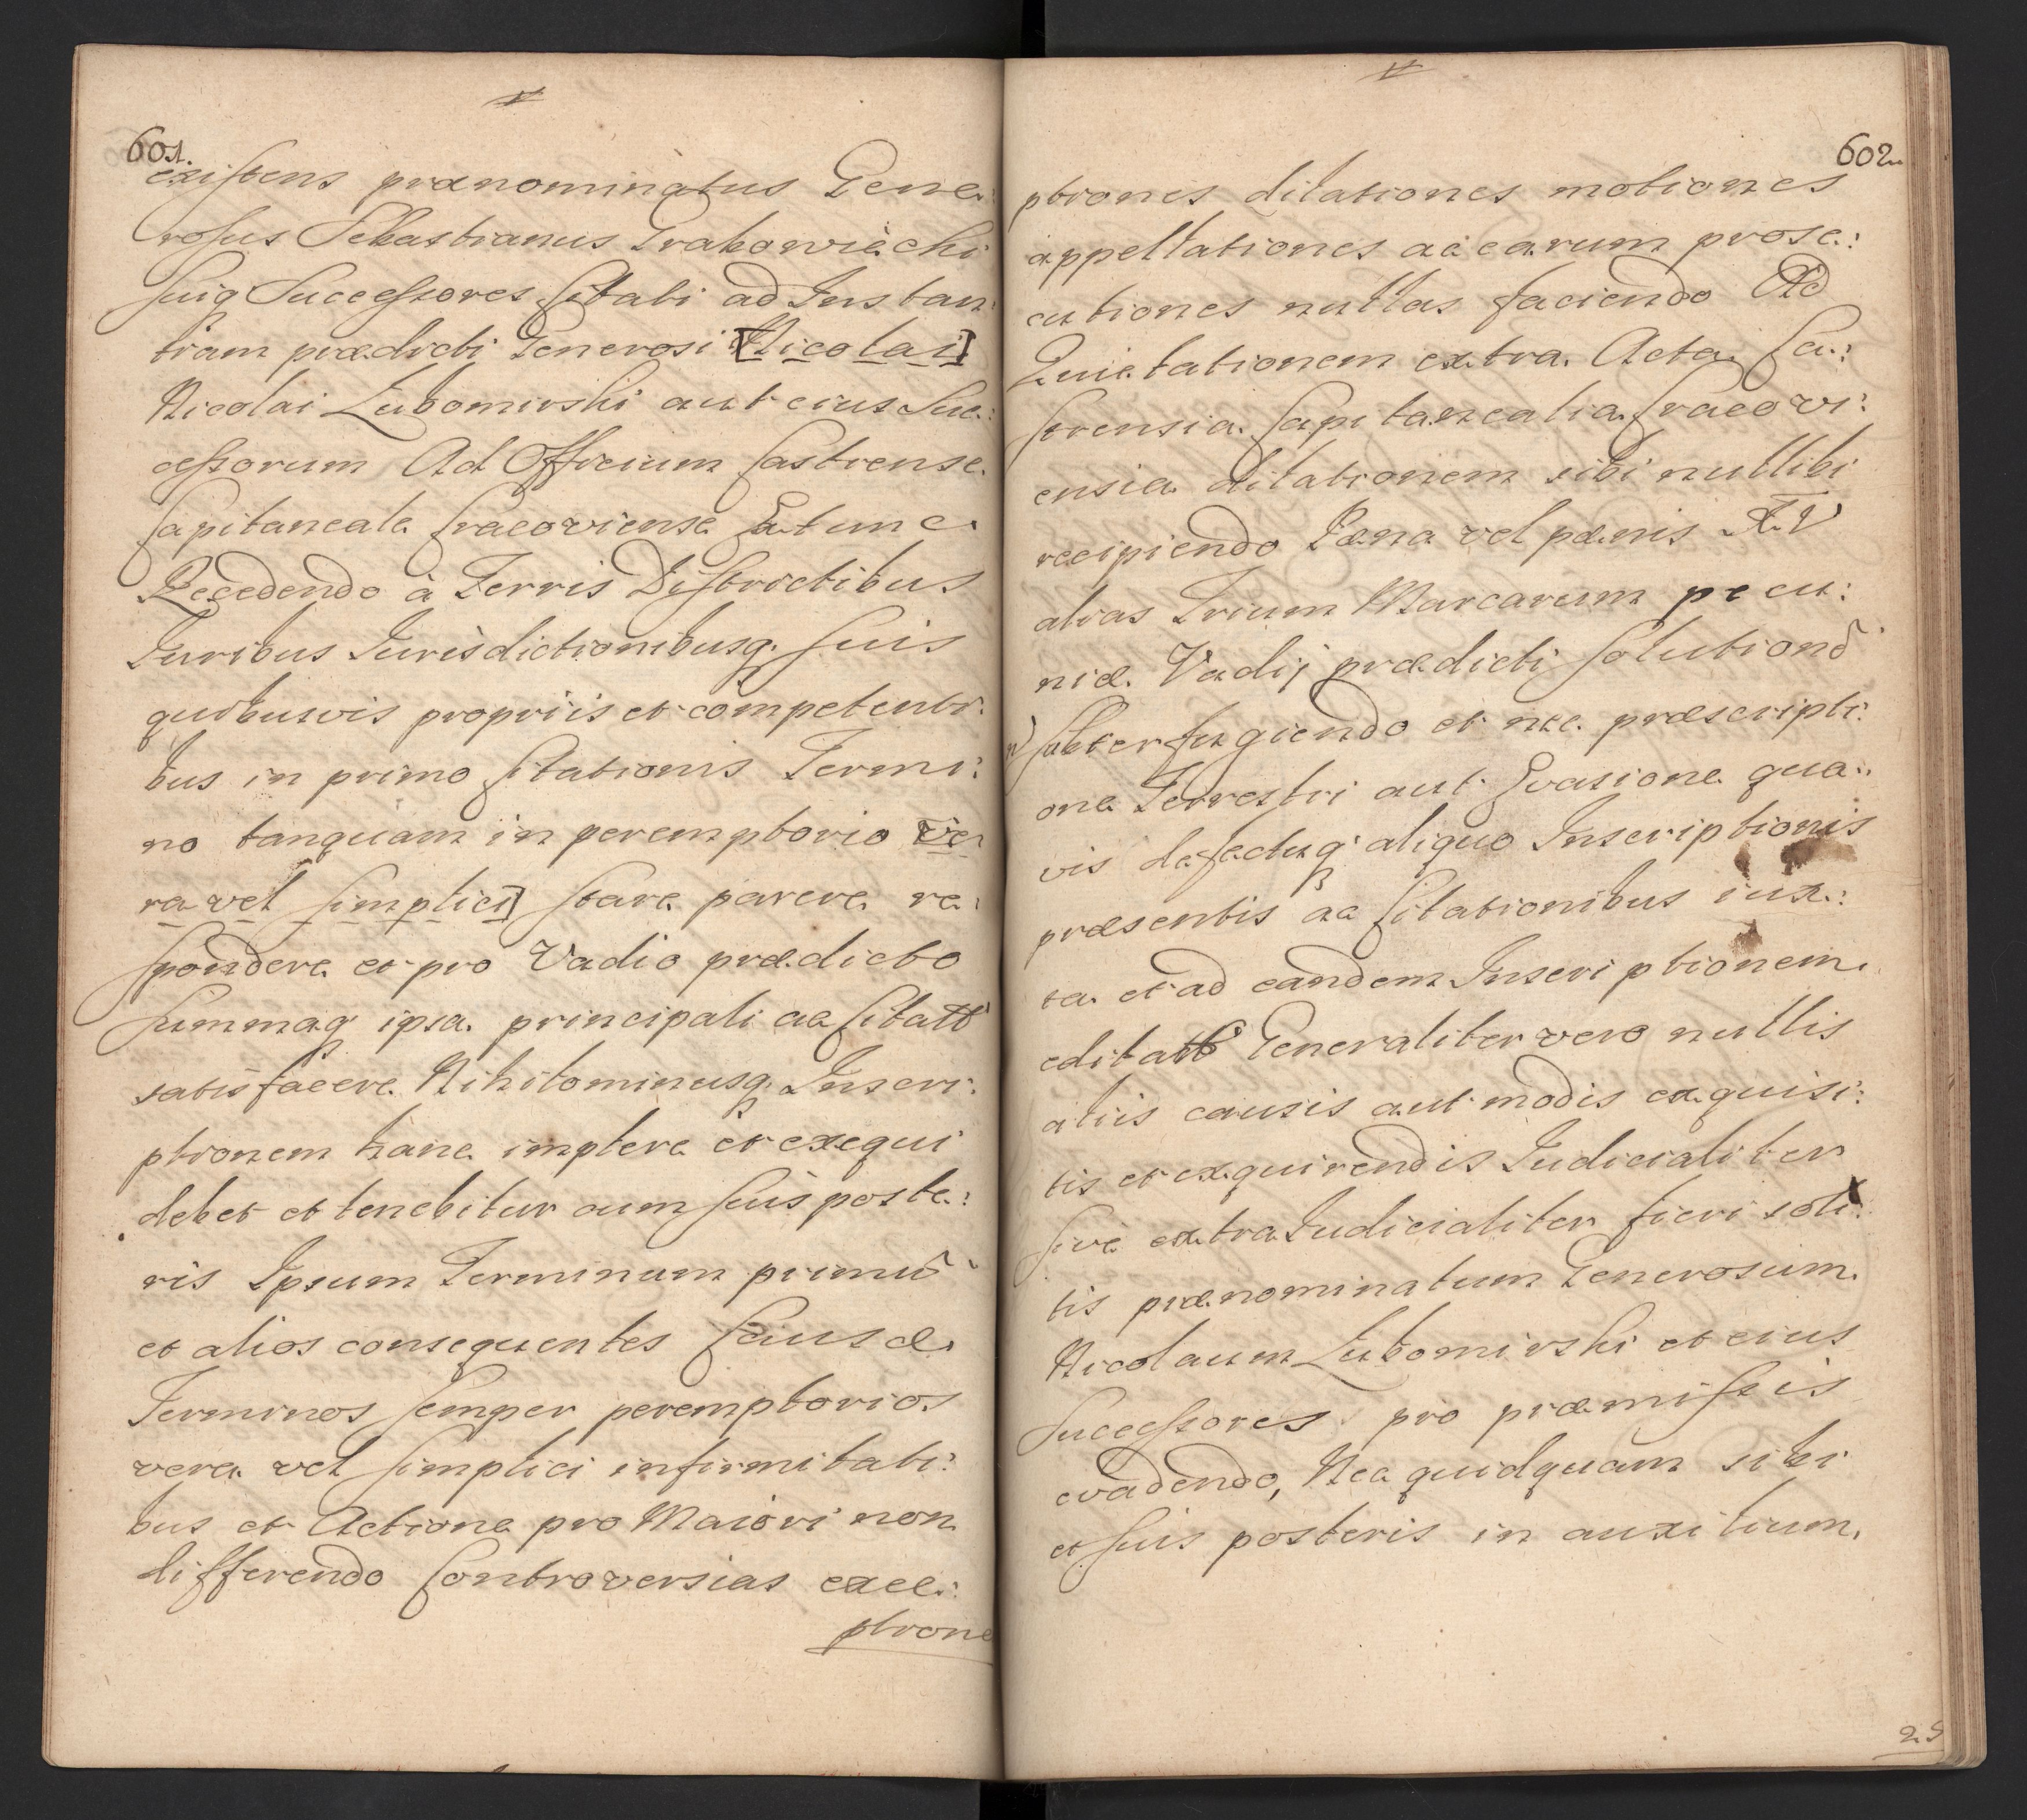 601.
existens prænominatus Gene:
rosus Sebastianus Grabowiecki
suiq Successores Citati ad Instan:
tiam prædicti Generosi [Nicolai]
Nicolai Lubomirski aut eius Suc:
cessorum Ad Officium Castrense
Capitaneale Cracoviense Ex tunc
Recedendo à Terris Districtibus
Iuribus Iurisdictionibusq. suis
quibusvis propriis et competenti:
bus in primo Citationis Termi:
no tanquam in peremptorio [ve
ra vel simplici] stare parere re:
spondere et pro Vadio prædicto
summaq ipsa principali ac Citatt
satisfacere Nihilominusq. Inscri:
ptionem hanc implere et exequi
debet et tenebitur cum suis poste:
ris Ipsum Terminum primũ
et alios consequentes Causæ
Terminos semper peremptorios
vera vel simplici infirmitati:
bus et Actione pro Maiori non
differendo Controversias exce:
ptione
602
ptiones dilationes motiones
appellationes ac earum prose:
cutiones nullas faciendo Ad
Quietationem extra Acta Ca:
strensia Capitanealia Cracovi:
ensia dilationem sibi nullibi
recipiendo Pæna vel pænis XIV
alias Trium Marcarum pecu:
niæ Vadij prædicti solutionẽ
subterfugiendo et nec præscripti:
one Terrestri aut Evasione qua:
vis defectuq aliquo Inscriptionis
præsentis ac Citationibus iux:
ta et ad eandem Inscriptionem
editatt Generaliter vero nullis
aliis causis aut modis exquisi:
tis et exquirendis Iudicialiter
sive extraIudicialiter fieri soli:
tis prænominatum Generosum
Nicolaum Lubomirski et eius
Successores pro præmissis
evadendo, Nec quidquam sibi
et suis posteris in auxilium
25